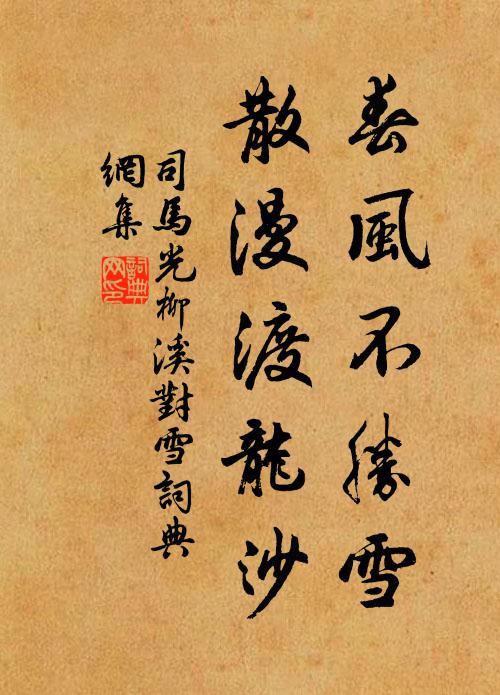 春風不勝雪
散漫渡龍沙
司馬光柳溪對雪詞典
網集
詞典
网印